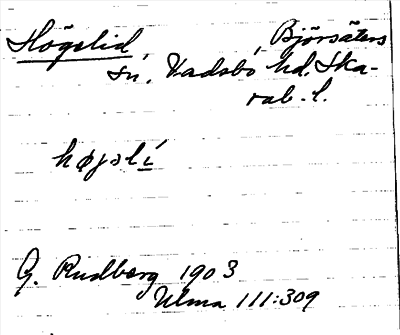 Högslid, Björsäters
sn, Vadsbo hd. Ska-
rab. l.
høgslí
G. Rudberg 1903
Ulma 111:309